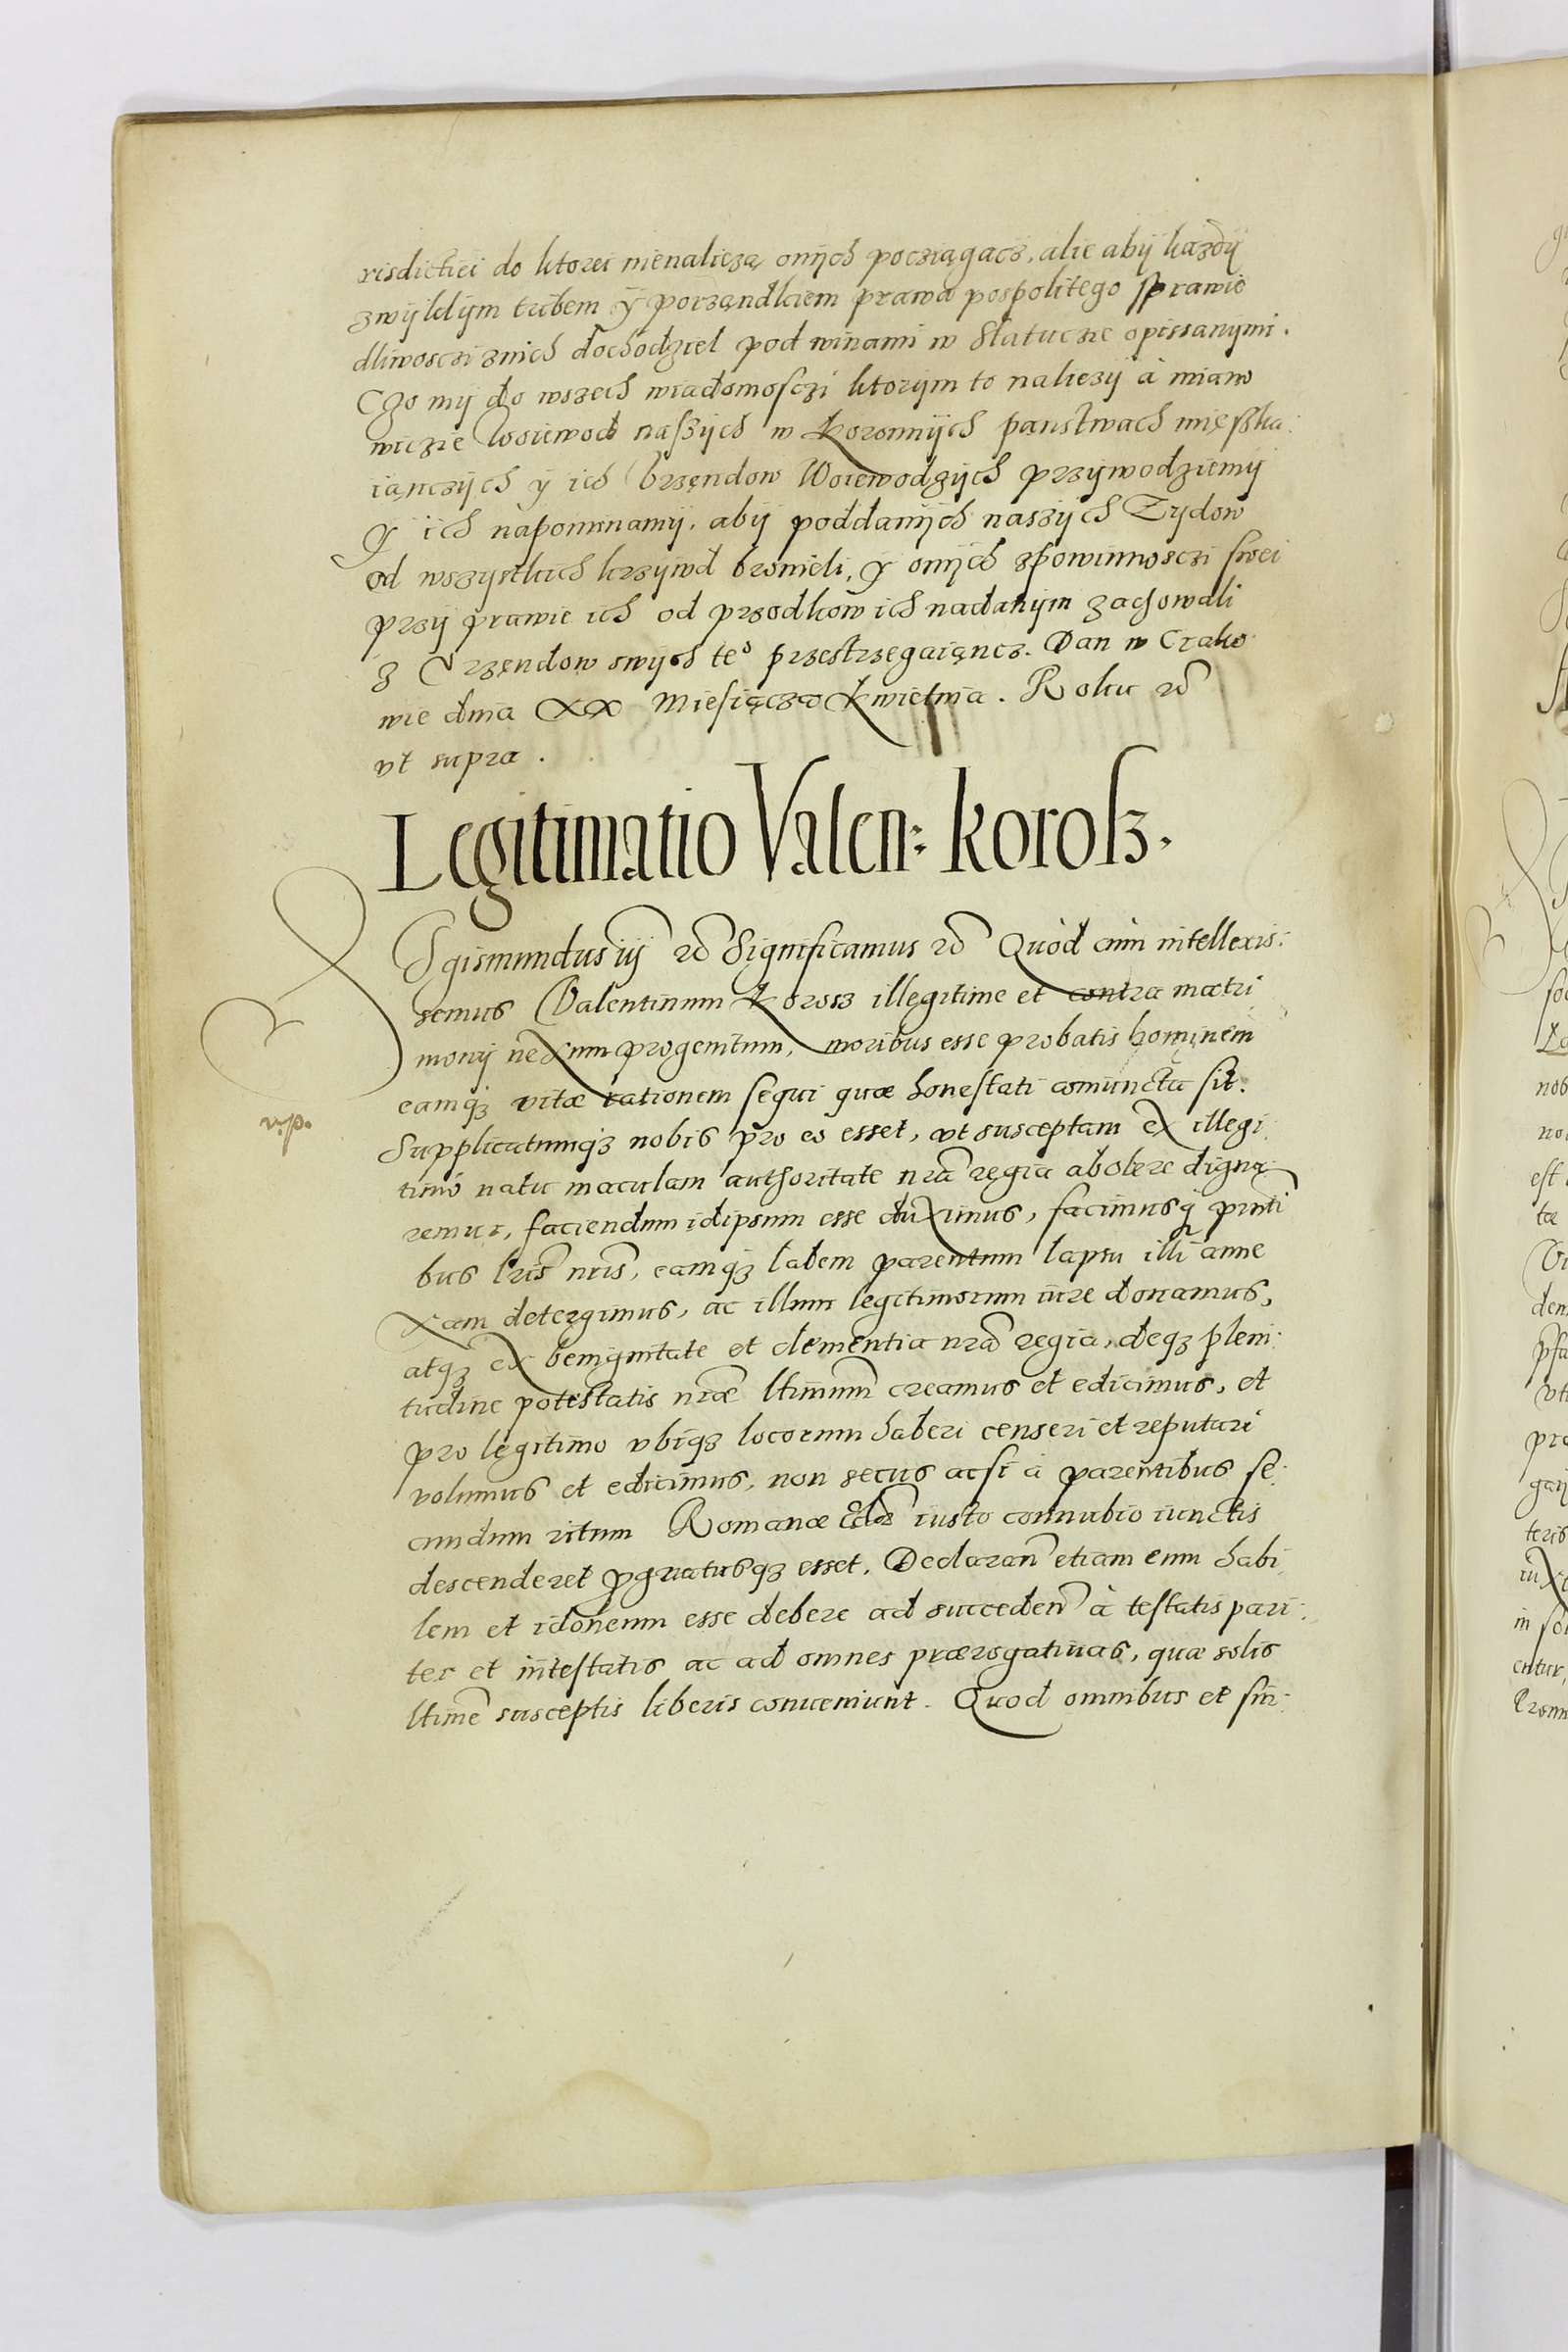 risdictiei do ktorei nienaliezą onijch poczięgacz, alie abij kazdij
zwijklijm tribem ÿ porządkiem prawa pospolitego sprawie
dliwosczi znich dochodziel pod winami w Statuczie opissanijmi.
Czo mij do wszech wiadomosczi ktorijm to naliezij à mianow
wiczie Woiewod naszijch w Koronnijch państwach mięszka:
iącnzijch ÿ ich Vrzęndow Woiewodzijch przijwodziemij
Y ich napominamij, abij poddanijch naszijch Zydow
od wszystkich krzijwd bronieli, y onijch zpowinnosczi swei
przij prawie ich od przodkow ich nadanijm zachowali
z Vrzęndow swijch te° przestrzegaiąncz. Dan w Crako
wie dnia XX Miesiącza Kwietnia. Roku etc
vt supra.
Legitimatio Valen: Korosz.
Sigismundus iij etc Significamus etc Quòd cum intellexis:
semus Valentinum Korosz illegitime et contra matri
monij nexum progenitum, moribus esse probatis hominem
eamqз vitæ rationem sequi quæ honestati coniuncta sit.
Supplicatumqз nobis pro eo esset, vt susceptam ex illegi:
timo natu maculam authoritate nrã regia abolere digna
remur, faciendum idipsum esse duximus, facimusq pnti
bus lris nris, eamqз labem parentum lapsu illi anne
xam detergimus, ac illum legitimorum iure donamus,
atqз ex benignitate et clementia nrã regia, deqз pleni:
tudine potestatis nræ ltimum creamus et edicimus, et
pro legitimo vbiqз locorum haberi censeri et reputari
volumus et edicimus, non secus acsi à parentibus se:
cundum ritum Romanæ Eclæ iusto connubio iunctis
descenderet pgnatusqз esset. Declaran etiam eum habi
lem et idoneum esse debere ad succeden à testatis pari:
ter et intestatis ac ad omnes prærogatiuas, quæ solis
ltime susceptis liberis conueniunt. Quod omnibus et sin: